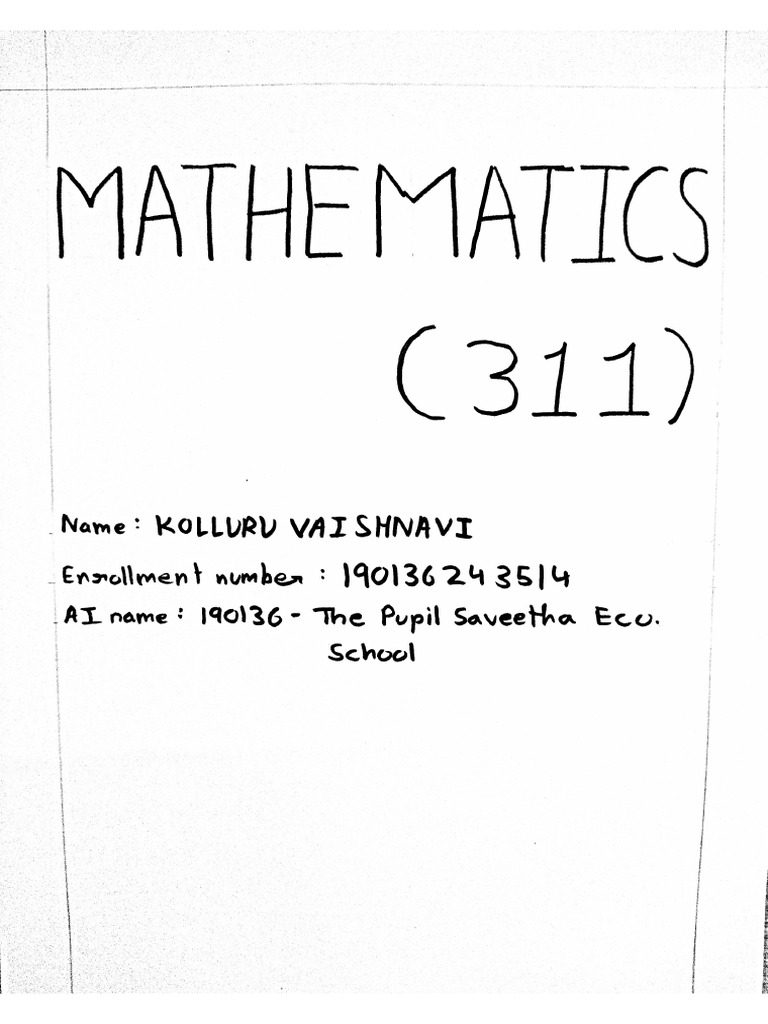 MATHEMATICS
(311)
Name: KOLLURU VAISHNAVI
Enrollment number: 190136243514
AI name: 190136- The Pupil Saveetha Eco.
School